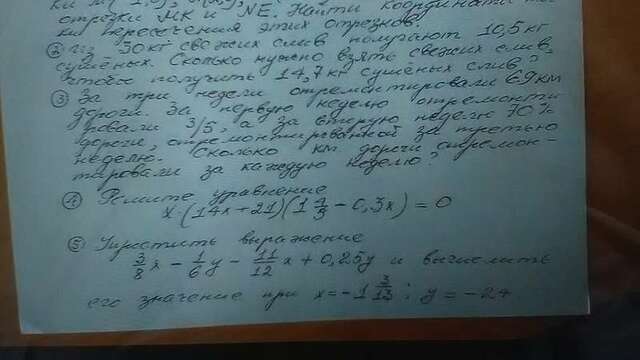 отрезки МК и NE. Найти координаты
ки пересечения этих отрезков.
② Из 30кг свежих слив получают 10,5кг
сушёных. Сколько нужно взять свежих слив,
чтобы получить 14,7кг сушёных слив?
③ За три недели отремонтировали 69км
дороги. За первую неделю отремонти
ровали 3/5, а за вторую неделю 70%
дороги, отремонтированной за третью
неделю. Сколько км дороги отремон-
тировали за каждую неделю?
④ Решите уравнение
x·(14x+21)(1 4/5 − 0,3x) = 0
⑤ Упростить выражение
3/8 x − 1/6 y − 11/12 x + 0,25y и вычислить
его значение при x = −1 3/13; y = −24